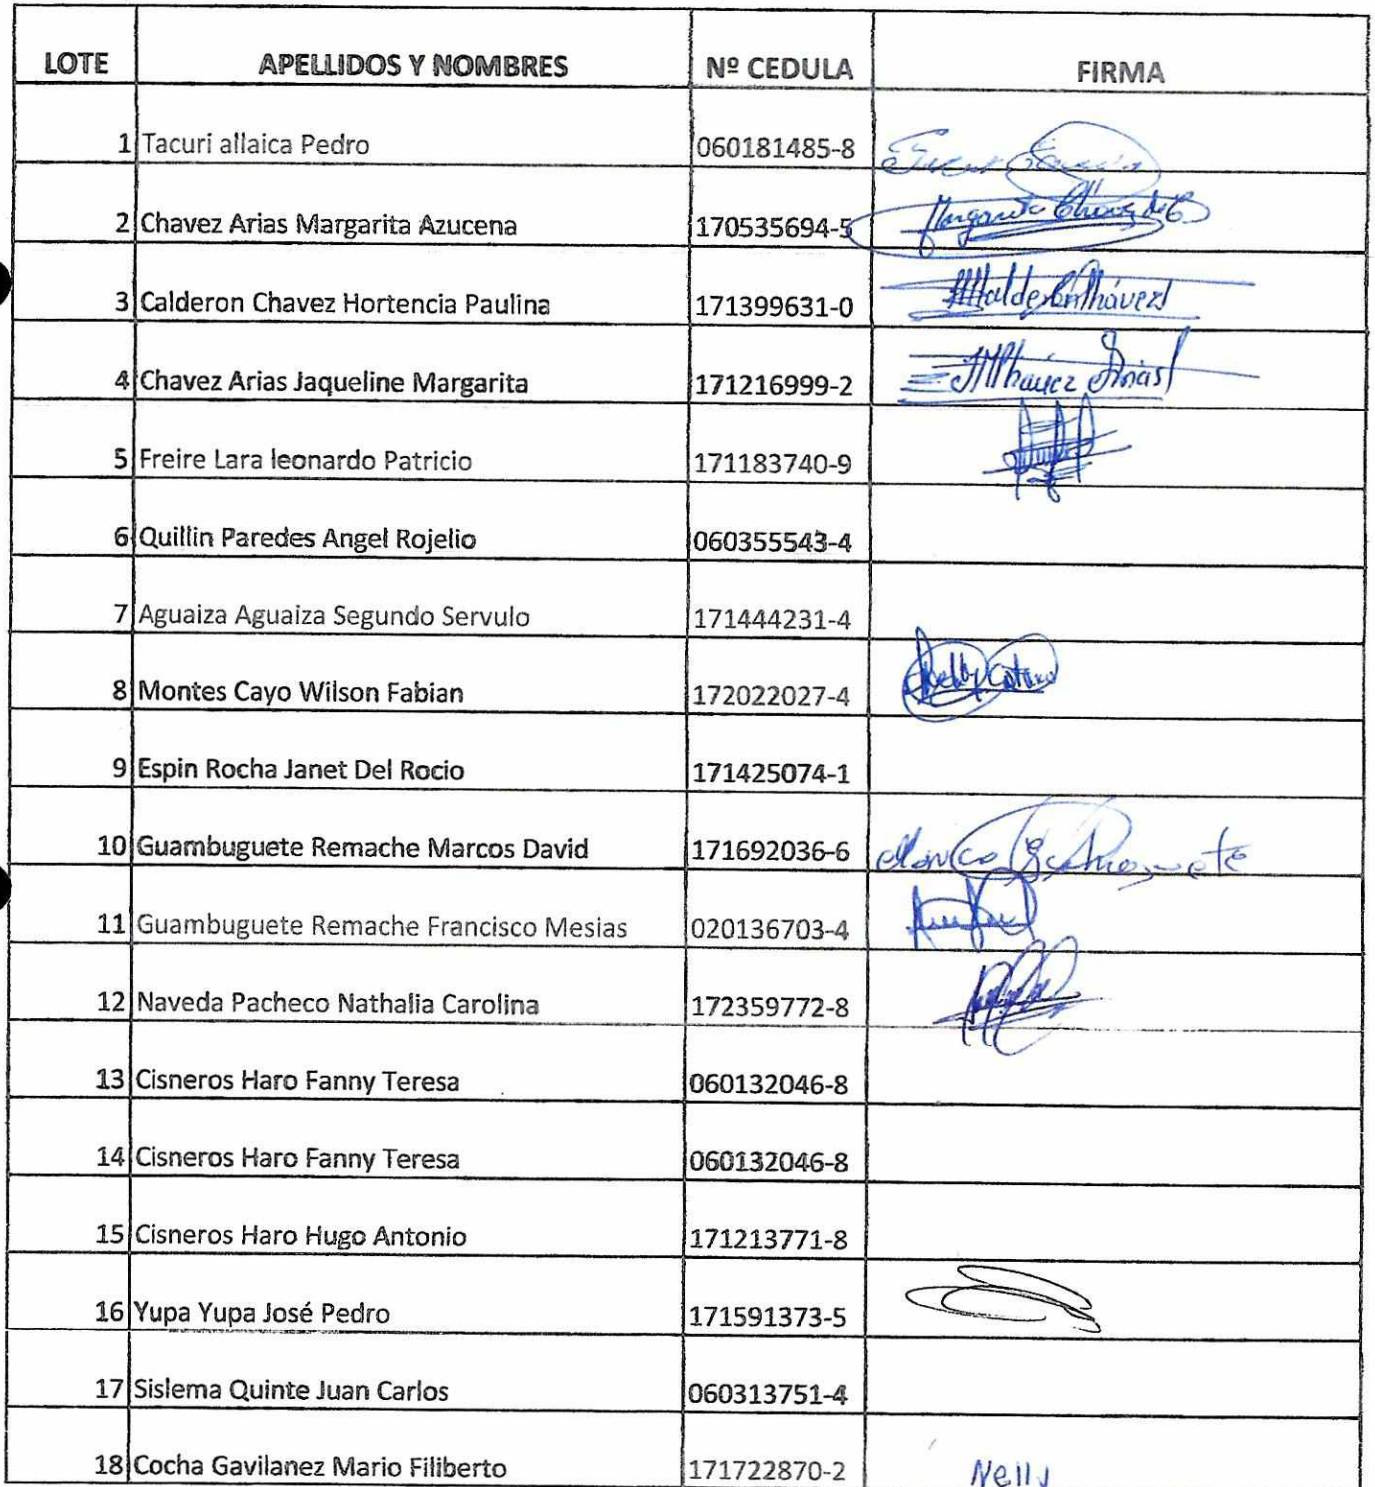 LOTE APELLIDOS Y NOMBRES Nº CEDULA FIRMA
1 Tacuri allaica Pedro 060181485-8
2 Chavez Arias Margarita Azucena 170535694-5 Margarita Chavez de C
3 Calderon Chavez Hortencia Paulina 171399631-0
4 Chavez Arias Jaqueline Margarita 171216999-2 Chávez Arias
5 Freire Lara leonardo Patricio 171183740-9
6 Quillin Paredes Angel Rojelio 060355543-4
7 Aguaiza Aguaiza Segundo Servulo 171444231-4
8 Montes Cayo Wilson Fabian 172022027-4 Nelly
9 Espin Rocha Janet Del Rocio 171425074-1
10 Guambuguete Remache Marcos David 171692036-6
11 Guambuguete Remache Francisco Mesias 020136703-4
12 Naveda Pacheco Nathalia Carolina 172359772-8
13 Cisneros Haro Fanny Teresa 060132046-8
14 Cisneros Haro Fanny Teresa 060132046-8
15 Cisneros Haro Hugo Antonio 171213771-8
16 Yupa Yupa José Pedro 171591373-5
17 Sislema Quinte Juan Carlos 060313751-4
18 Cocha Gavilanez Mario Filiberto 171722870-2 Nelly